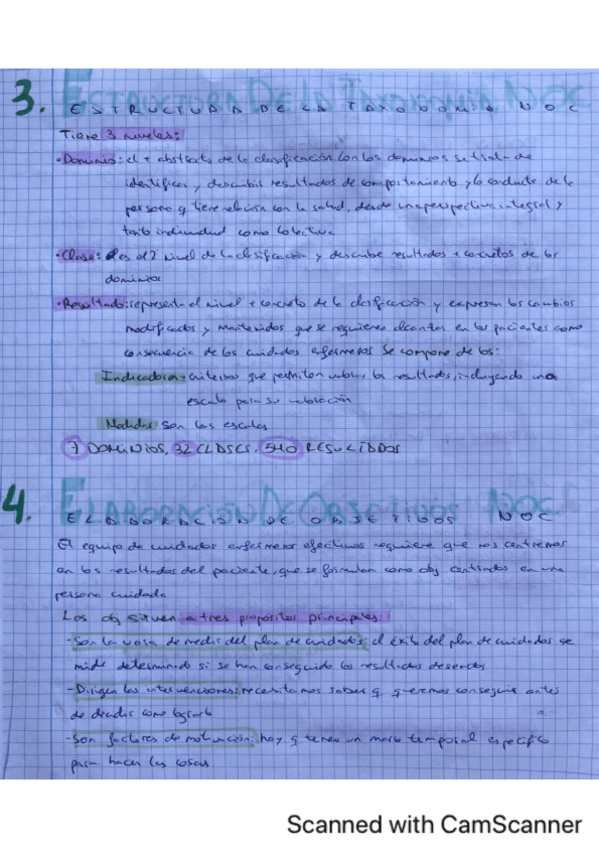 3. ESTRUCTURA DE LA TAXONOMIA NOC
Tiene 3 niveles:
· Dominio: el + abstracto de la clasificación. Con los dominios se trata de
identificar y describir resultados de comportamiento y/o conducta de la
persona q tiene relación con la salud, desde una perspectiva integral y
tanto individual como colectiva
· Clase: es el 2º nivel de la clasificación y describe resultados + concretos de los
dominios
· Resultado: representa el nivel + concreto de la clasificación y expresan los cambios
modificados y mantenidos que se requieren alcanzar en los pacientes como
consecuencia de los cuidados enfermeros Se compone de los:
Indicadores: criterios que permiten valorar los resultados, incluyendo una
escala para su valoración
Medidas: Son las escalas
7 DOMINIOS, 32 CLASES, 540 RESULTADOS
4. ELABORACION DE OBJETIVOS NOC
El equipo de cuidados enfermeros efectivos requiere que nos centremos
en los resultados del paciente, que se formulan como obj centrados en una
persona cuidada
Los obj sirven a tres propósitos principales:
- Son la vara de medir del plan de cuidados: el éxito del plan de cuidados se
mide determinado si se han conseguido los resultados deseados
- Dirigen las intervenciones: necesitamos saber q queremos conseguir antes
de decidir como lograrlo
- Son factores de motivación: hay q tener un marco temporal específico
para hacer las cosas
Scanned with CamScanner